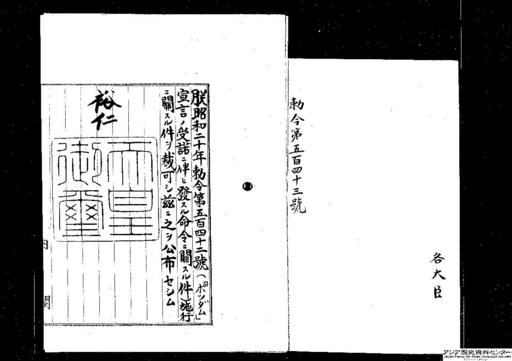 勅令第五百四十三號
各大臣
朕昭和二十年勅令第五百四十二號（「ポツダム」
宣言ノ受諾ニ伴ヒ發スル命令ニ關スル件）施行
ニ關スル件ヲ裁可シ茲ニ之ヲ公布セシム
裕仁
天皇
御璽
内閣
アジア歴史資料センター
Japan Center for Asian Historical Records